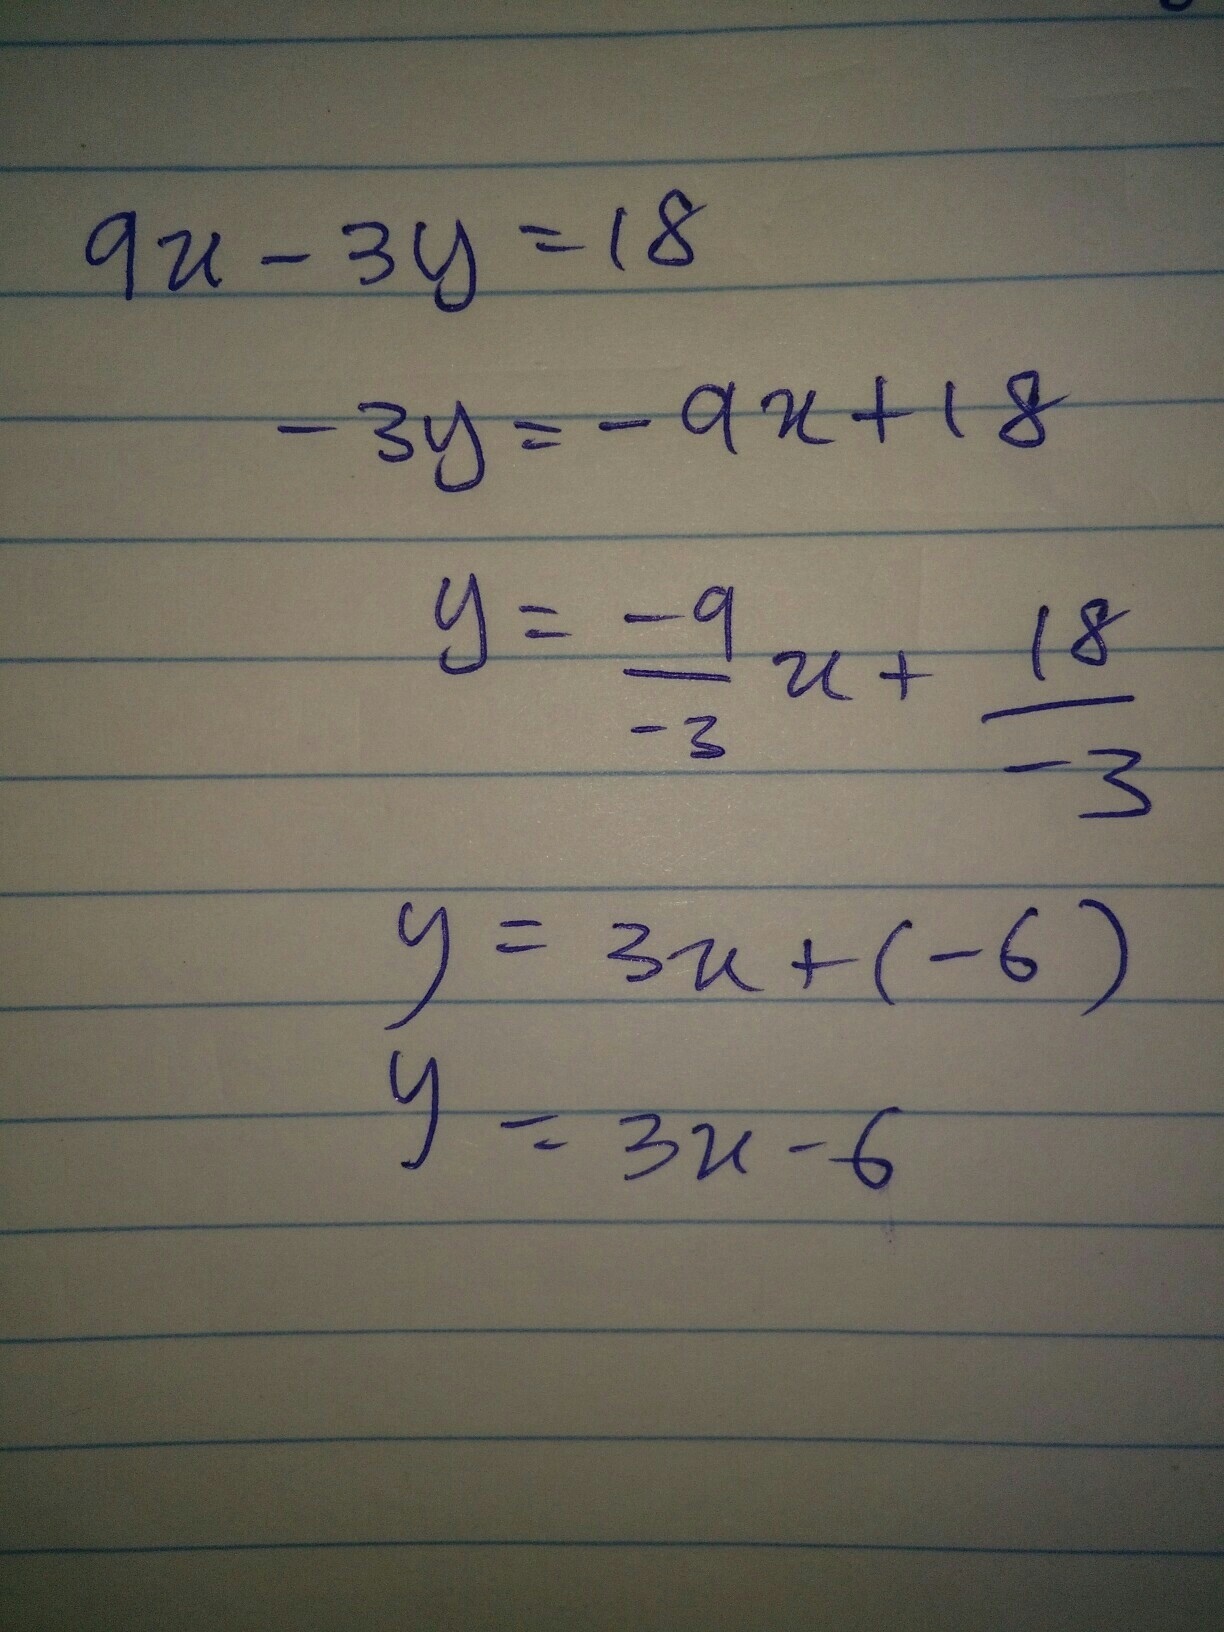 9x - 3y = 18
-3y = -9x + 18
y = -9/-3 x + 18/-3
y = 3x + (-6)
y = 3x - 6